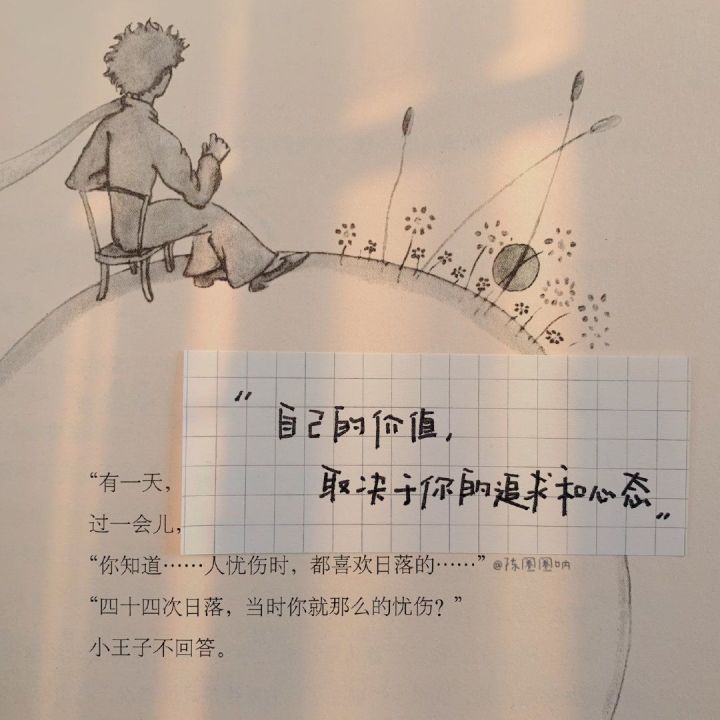 “自己的价值，
取决于你的追求和心态”
“有一天，
过一会儿，
“你知道……人忧伤时，都喜欢日落的……”
@陈圈圈呐
“四十四次日落，当时你就那么的忧伤？”
小王子不回答。